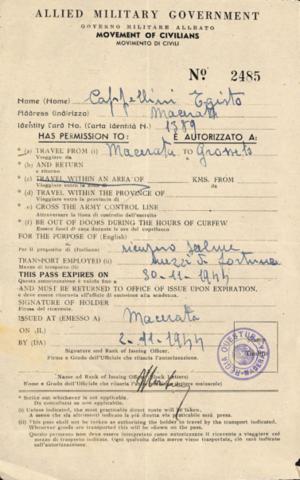 ALLIED MILITARY GOVERNMENT
GOVERNO MILITARE ALLEATO
MOVEMENT OF CIVILIANS
MOVIMENTO DI CIVILI
Nº 2485
Name (Nome) Cappellini Egisto
Address (Indirizzo) Macerata
Identity Card No. (Carta Identità N.) 1389
HAS PERMISSION TO: È AUTORIZZATO A:
* (a) TRAVEL FROM (i) Macerata TO Grosseto
Viaggiare da
* (b) AND RETURN
e ritorno
* (c) TRAVEL WITHIN AN AREA OF KMS. FROM
Viaggiare entro la zona di km. da
* (d) TRAVEL WITHIN THE PROVINCE OF
Viaggiare entro la provincia di
* (e) CROSS THE ARMY CONTROL LINE
Attraversare la linea di controllo dell'esercito
* (f) BE OUT OF DOORS DURING THE HOURS OF CURFEW
Essere fuori di casa durante le ore del coprifuoco
FOR THE PURPOSE OF (English)
Per il proposito di (Italiano) salme
TRANSPORT EMPLOYED (ii) mezzi di fortuna
Mezzo di trasporto (ii)
THIS PASS EXPIRES ON 30-11-1944
Questa autorizzazione è valida fino a
AND MUST BE RETURNED TO OFFICE OF ISSUE UPON EXPIRATION.
e deve essere restituita all'ufficio di emissione alla scadenza.
SIGNATURE OF HOLDER
Firma del ricevente.
ISSUED AT (EMESSO A) Macerata
ON (IL)
BY (DA) 2-11-1944
Signature and Rank of Issuing Officer.
Firma e Grado dell'Ufficiale che rilascia l'autorizzazione.
Name and Rank of Issuing Officer (Block Letters)
Nome e Grado dell'Ufficiale che rilascia (lettere maiuscole)
REGIA QUESTURA
* Strike out whichever is not applicable.
Da cancellarsi se non applicabile.
(i) Unless indicated, the most practicable direct route will be taken.
A meno che sia altrimenti indicato la più diretta via praticabile sarà presa.
(ii) This pass shall not be taken as authorising the holder to travel by the transport indicated.
Whenever goods are transported this will be shown on the pass.
Questo permesso non deve essere interpretato come autorizzazione a viaggiare col
mezzo di trasporto indicato. Ogni qual volta delle merci vengono trasportate, ciò sarà indicato
sull'autorizzazione.